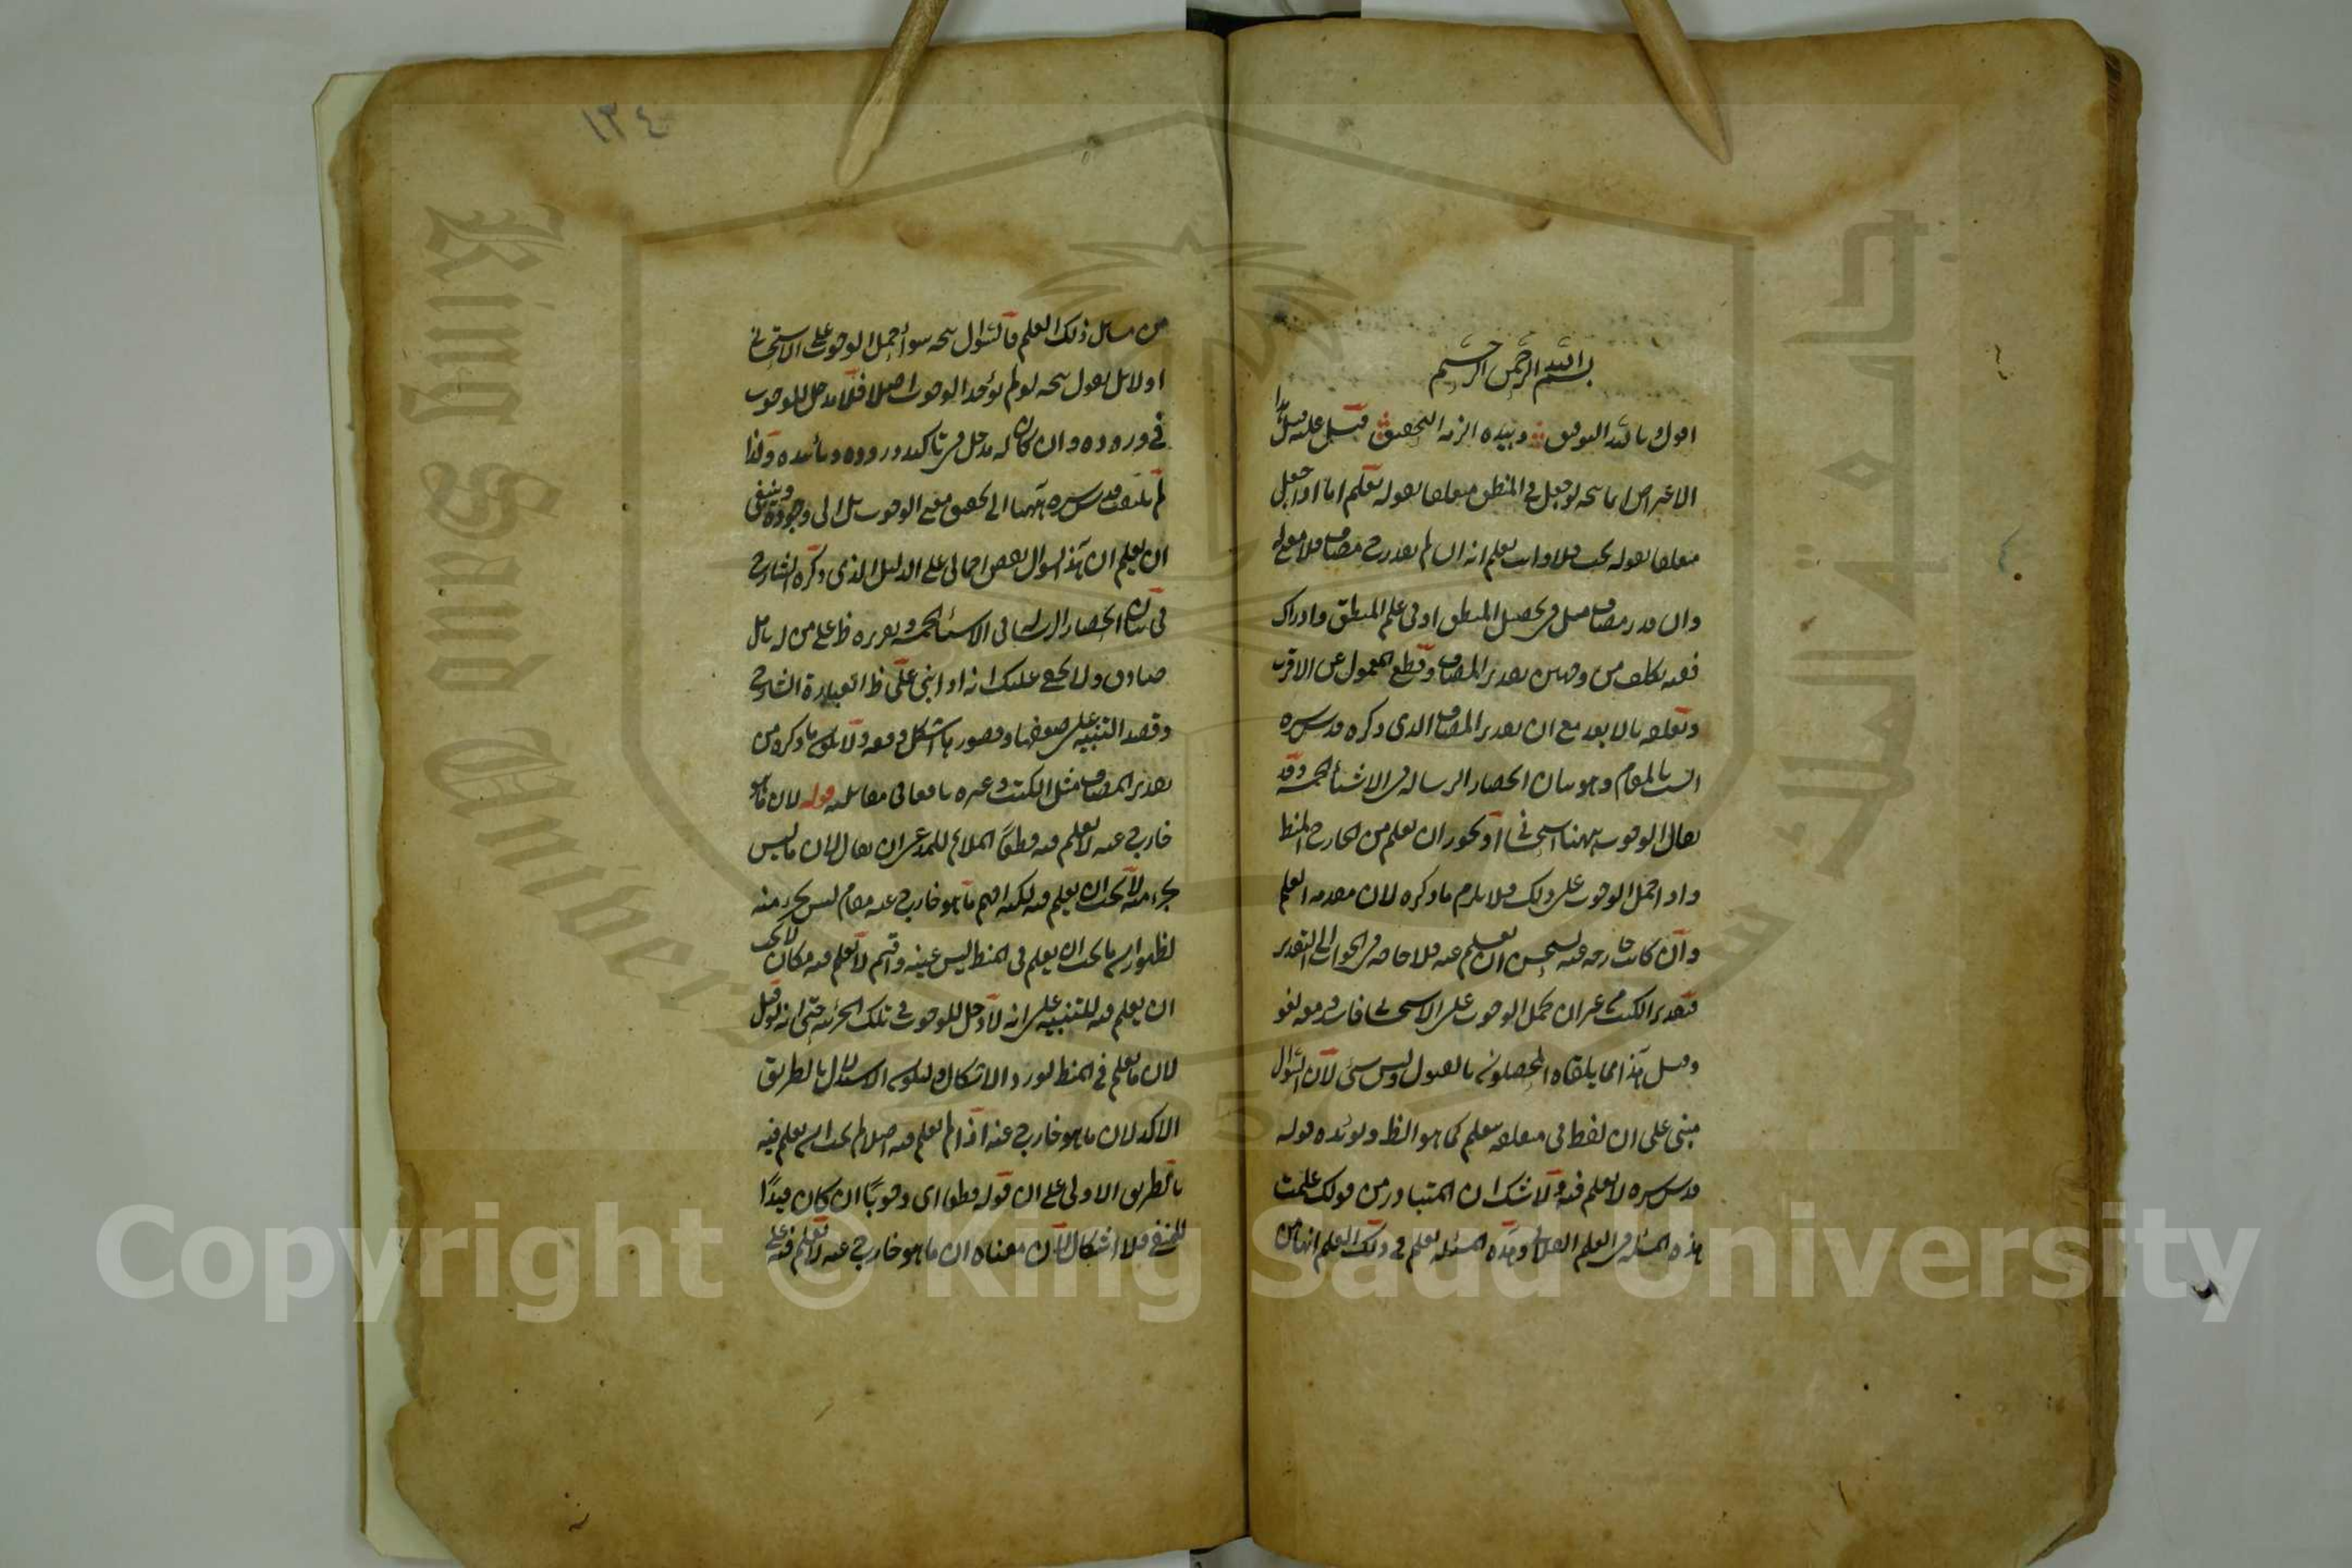 بسم الله الرحمن الرحيم
اقول وبالله التوفيق وبيده ازمة التحقيق قيل عليه
الاعتراض انما يتجه لو جعل في المنطق متعلقا بقوله يعلم اما اذا جعل
متعلقا بقوله يجب فلا وانت تعلم انه ان لم يقدر مضاف فلا معنى له
وان قدر مضاف مثل في تحصيل المنطق او في علم المنطق وادراك
ففيه تكلف من وجهين تقدير المضاف وقطع المعمول عن الاقرب
وتعلقه بالابعد مع ان تقدير المضاف الذي ذكره قدس سره
انسب بالمقام وهو بيان انحصار الرسالة في الاشياء الخمسة وقد
يقال الوجوب ههنا استحساني او يجوز ان يعلم من الخارج المنطق
واذا حمل الوجوب على ذلك فلا يلزم ما ذكره لان مقدمة العلم
وان كانت خارجة عنه يستحسن ان يعلم فلا حاجة في الجواب الى التقدير
فتقدير الكتب من غير ان يحمل الوجوب على الاستحساني
وقيل هذا مما يلقاه المحصلون بالقبول وليس بشئ لان السؤال
مبني على ان لفظ في متعلقة بيعلم كما هو الظ ويؤيده قوله
قدس سره لا يعلم فيه ولا شك ان المتبادر من قولك علمت
هذه المسئلة في العلم الفلاني وهذه المسئلة تعلم في ذلك العلم انها من
من مسائل ذلك العلم فالسؤال يتجه سواء حمل الوجوب على الاستحساني
او لا بل نقول يتجه لو لم يؤخذ الوجوب اصلا فلا مدخل للوجوب
في وروده وان كان له مدخل في تاكيد وروده وتأييده ولذا
لم يلتفت قدس سره ههنا الى تحقيق معنى الوجوب بل الى وجوده وينبغي
ان يعلم ان هذا السؤال نقض اجمالي على الدليل الذي ذكره الشارح
في بيان انحصار الرسالة في الاشياء الخمسة وتقريره ظ على من له تامل
صادق ولا يخفى عليك انه اذا بني على ظ العبارة الشارح
وقصد التنبيه على ضعفها وقصورها اشكل دفعه ولا يلائمه ما ذكره من
تقدير المضاف مثل الكتب وغيره
قوله لان ما هو
خارج عنه لا يعلم فيه قطعا الملائم للمدعى ان يقال لان ما ليس
بجزء منه لا يجب ان يعلم فيه لكنه اقيم ما هو خارج عنه مقام ليس بجزء منه
لظهور ان ما يجب ان يعلم في المنطق ليس عينه واقيم لا يعلم فيه مكان لا يجب
ان يعلم فيه للتنبيه على انه لا دخل للوجوب في تلك الجزئية حتى انه لو قيل
لان ما يعلم في المنطق لورد الاشكال وليكون الاستدلال بالطريق
الاكد لان ما هو خارج عنه اذا لم يعلم فيه اصلا لم يجب ان يعلم فيه
بالطريق الاولى على ان قوله قطعا اي وجوبا ان كان قيدا
للمنفي فلا اشكال لان معناه ان ما هو خارج عنه لا يعلم فيه على
١٣٤
Copyright © King Saud University
King Saud University
1957